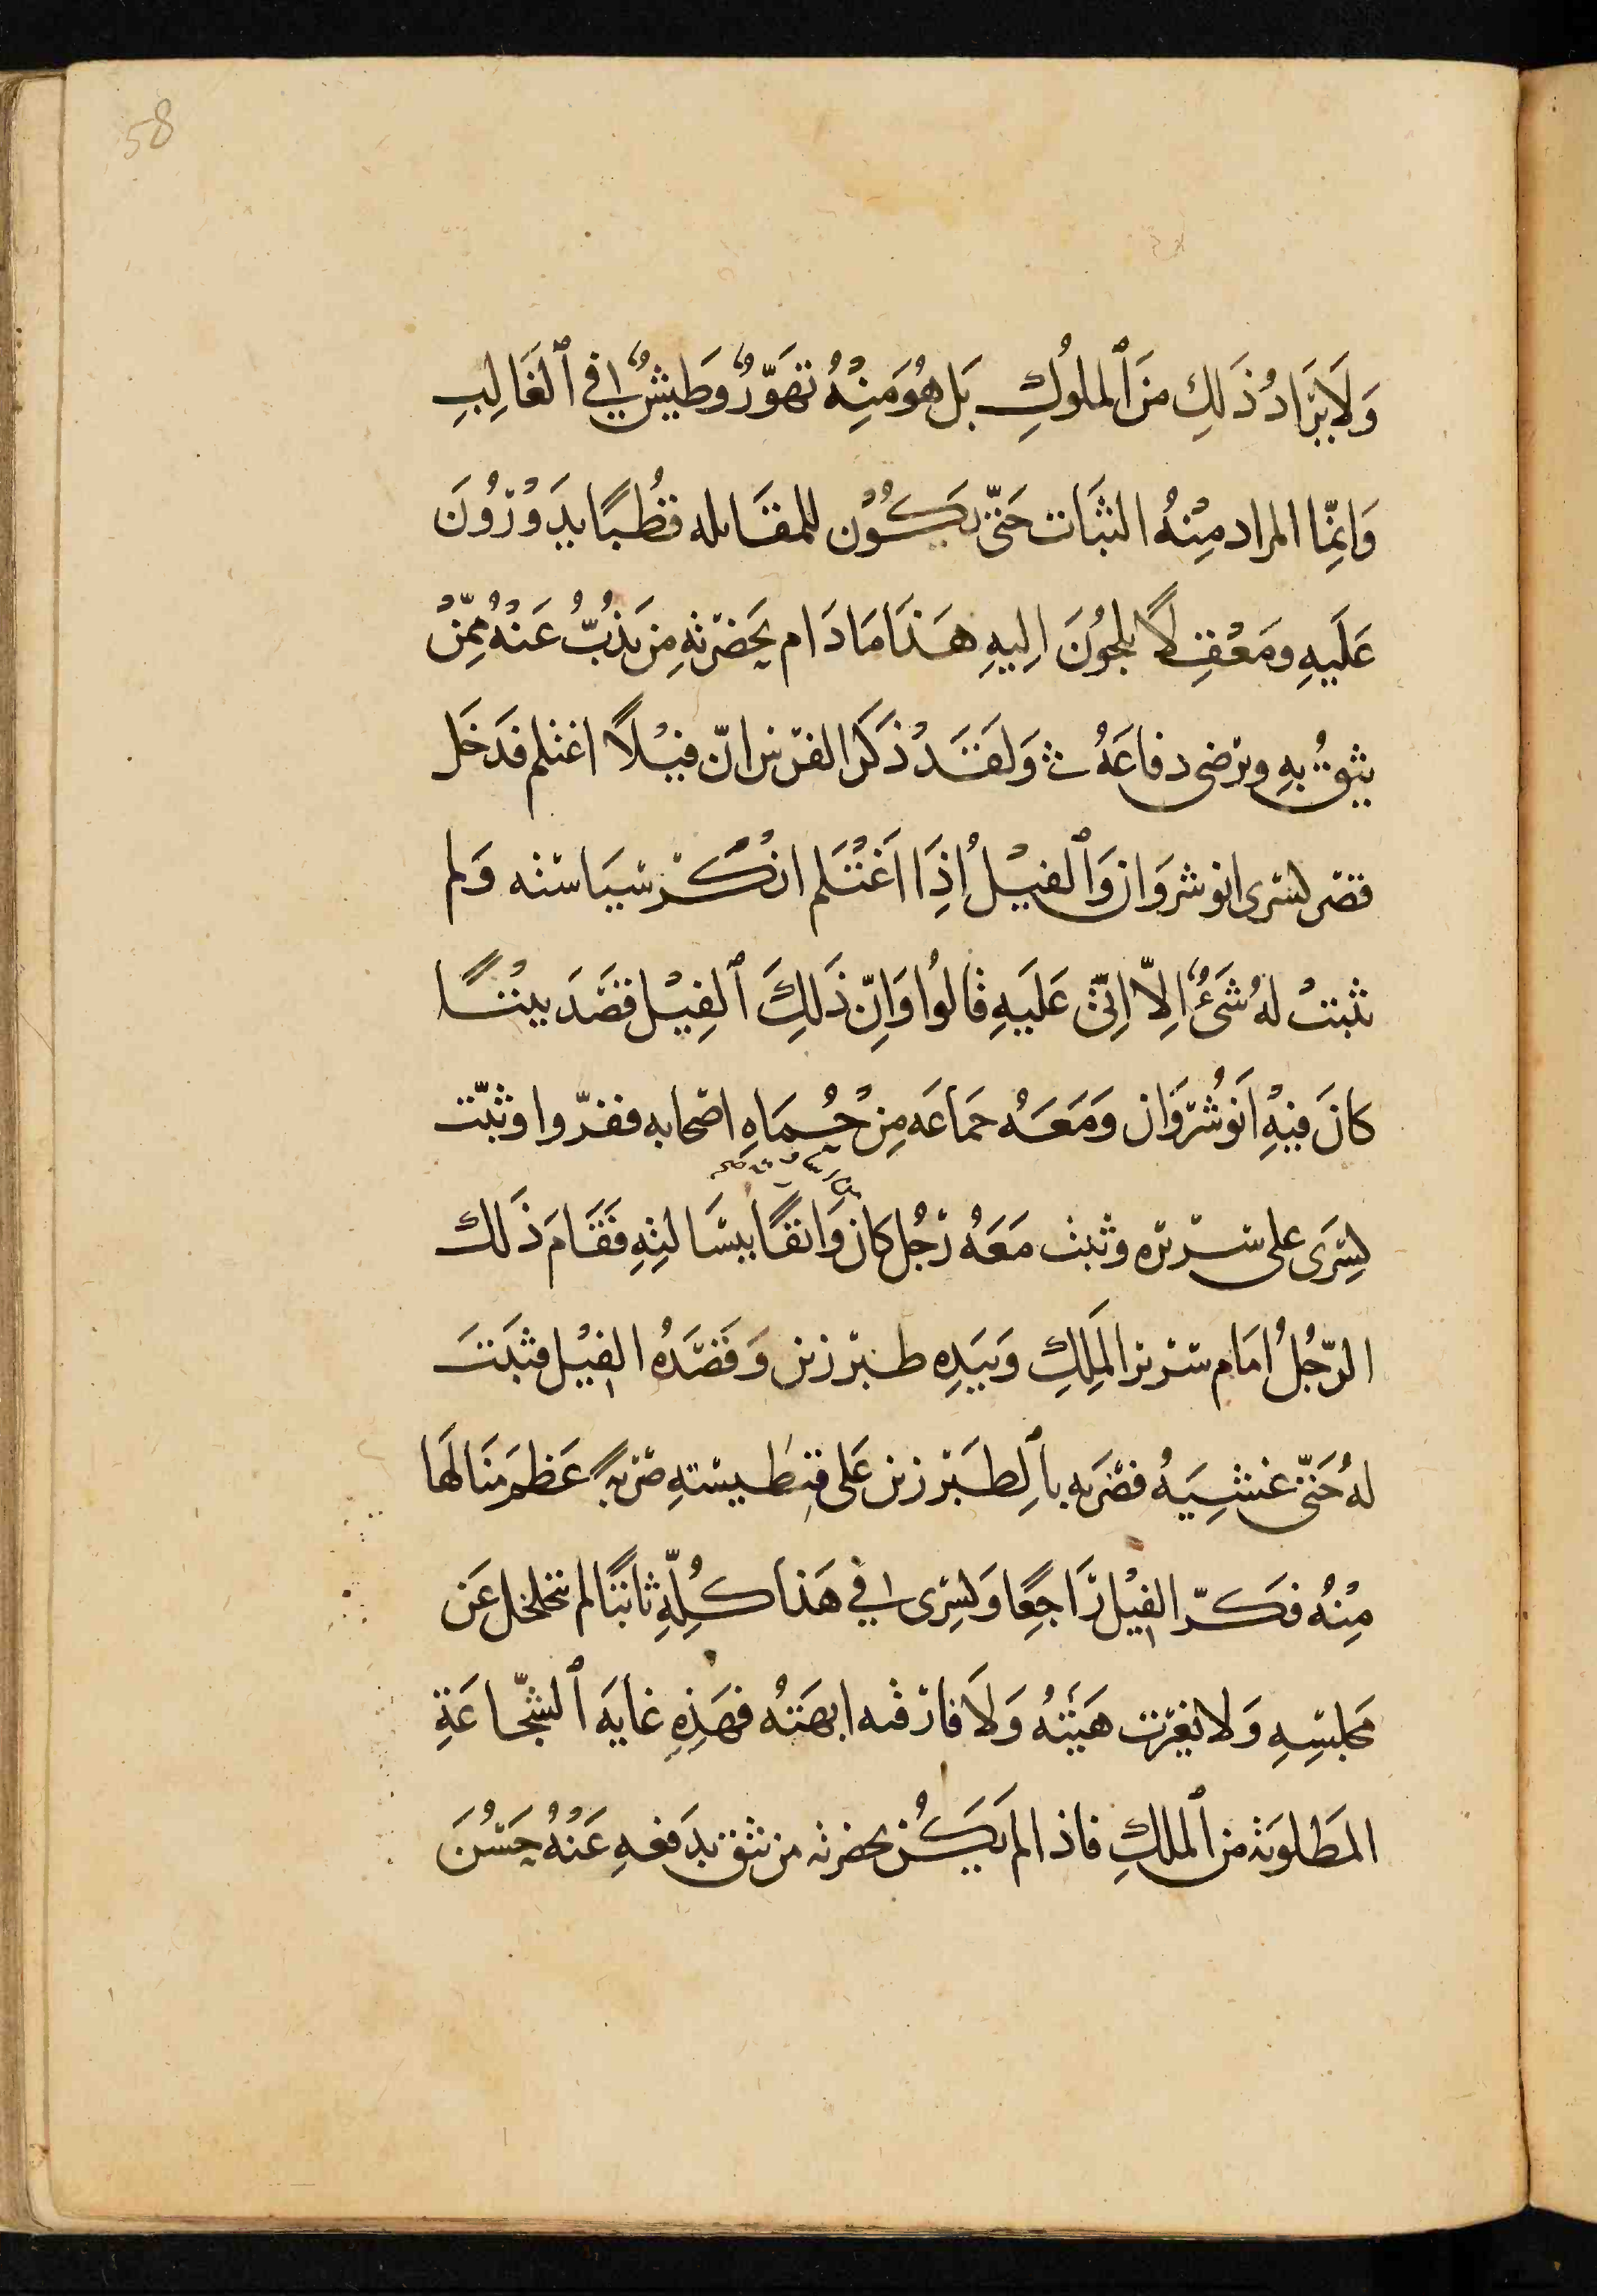 58
وَلَا يُرَادُ ذَلِكَ مِنَ ٱلملُوكِ بَل هُوَ مِنْهُ تهَوّرٌ وَطَيشٌ في ٱلغَالِبِ
وَانّمِا المراد مِنْهُ الثبَات حَتّى يَكُوْن للمقَاتله قطُبًا يدَوُرُونَ
عَلَيهِ ومَعْقِلًا يلجوُنَ اِليهِ هَذَا مَا دَام بحَضرتهِ مِن يَذُبُّ عَنْهُ مِمّنْ
يثقُ بهِ ويرضى دفاعَهُ وَلَقَدْ ذَكَرَ الفرس انّ فيْلًا اغتلم فدَخَل
قصر كسرى انوشروَان وَٱلفيْلُ اِذَا اَغْتَلم انكَرَ سيَاسته وَلم
يثبتْ لهُ شَىءٌ اِلاّ اتى عَلَيهِ قالوُا وَاِنّ ذَلِكَ ٱلفِيْل قصَدَ بيْتًا
كانَ فيْهِ اَنوُشْرَوَان وَمَعَهُ جمَاعَه مِنْ حُمَاهِ اصحابه ففرّوا وثبّت
كِسْرَى على سريره وثبت مَعَهُ رَجُل كان وَاثقًا ببسَالتِهِ فقَامَ ذَلك
الرّجُلُ امَام سرير المَلِكِ وَبيَدِه طبرزين وَقصَدَهُ الفيْل فثبَتَ
لهُ حَتىّ غشيَهُ فضرَبه بٱلطبَرزين عَلى فنطيسَتهِ ضربهً عَظمَ منَالهَا
مِنْهُ فكَرّ الفيْل رَاجِعًا وَكِسرى في هَذا كُلّهِ ثابتًا لم يتخلخل عَن
مَجلسِهِ وَلا تغيرت هَيئتهُ وَلَا فارقته ابهَتهُ فهَذِهِ غايَه ٱلشّجَاعَةِ
المطَلوبَه من ٱلملكِ فاذا لم يَكُن بحضرته من يثق بدَفعهِ عَنْهُ حَسُنَ